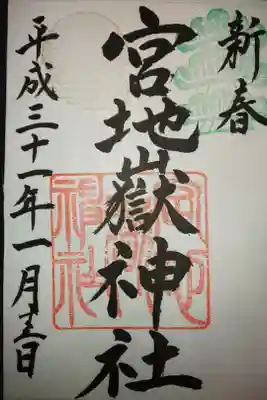 新春
宮地嶽神社
平成三十一年一月十三日